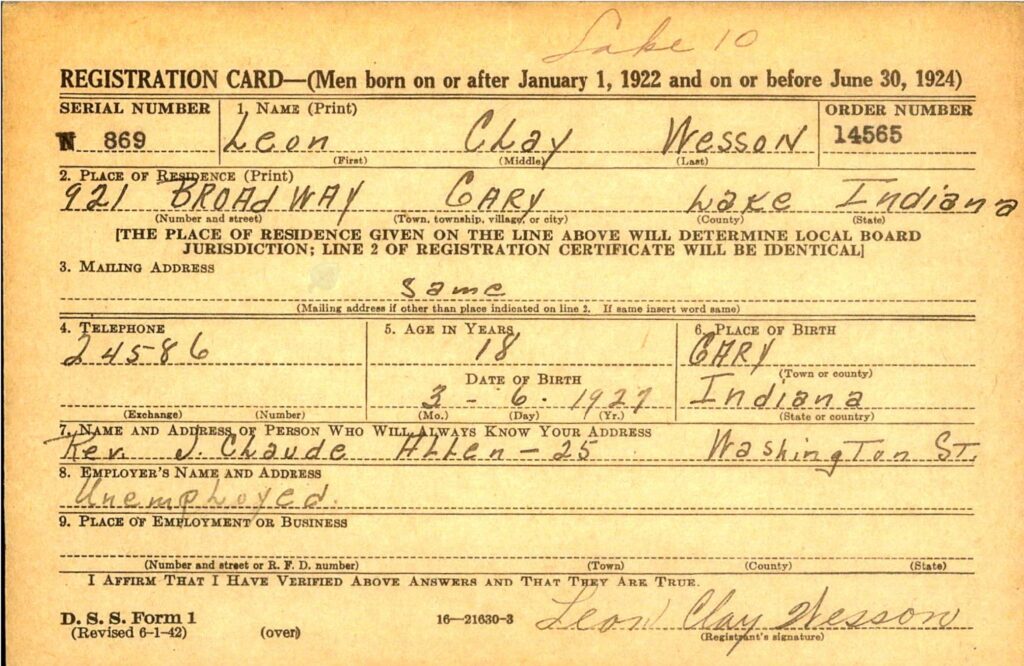 Lake 10
REGISTRATION CARD—(Men born on or after January 1, 1922 and on or before June 30, 1924)
SERIAL NUMBER 1. NAME (Print) ORDER NUMBER
N 869 Leon Clay Wesson 14565
(First) (Middle) (Last)
2. PLACE OF RESIDENCE (Print)
921 BROADWAY GARY Lake Indiana
(Number and street) (Town, township, village, or city) (County) (State)
[THE PLACE OF RESIDENCE GIVEN ON THE LINE ABOVE WILL DETERMINE LOCAL BOARD
JURISDICTION; LINE 2 OF REGISTRATION CERTIFICATE WILL BE IDENTICAL]
3. MAILING ADDRESS
Same
(Mailing address if other than place indicated on line 2. If same insert word same)
4. TELEPHONE 5. AGE IN YEARS 6. PLACE OF BIRTH
24586 18 GARY
(Town or county)
DATE OF BIRTH
3 - 6 - 1927 Indiana
(Exchange) (Number) (Mo.) (Day) (Yr.) (State or country)
7. NAME AND ADDRESS OF PERSON WHO WILL ALWAYS KNOW YOUR ADDRESS
Rev. J. Claude Allen - 25 Washington ST.
8. EMPLOYER'S NAME AND ADDRESS
Unemployed.
9. PLACE OF EMPLOYMENT OR BUSINESS
(Number and street or R. F. D. number) (Town) (County) (State)
I AFFIRM THAT I HAVE VERIFIED ABOVE ANSWERS AND THAT THEY ARE TRUE.
D. S. S. Form 1 16—21630-3 Leon Clay Wesson
(Revised 6-1-42) (over) (Registrant's signature)